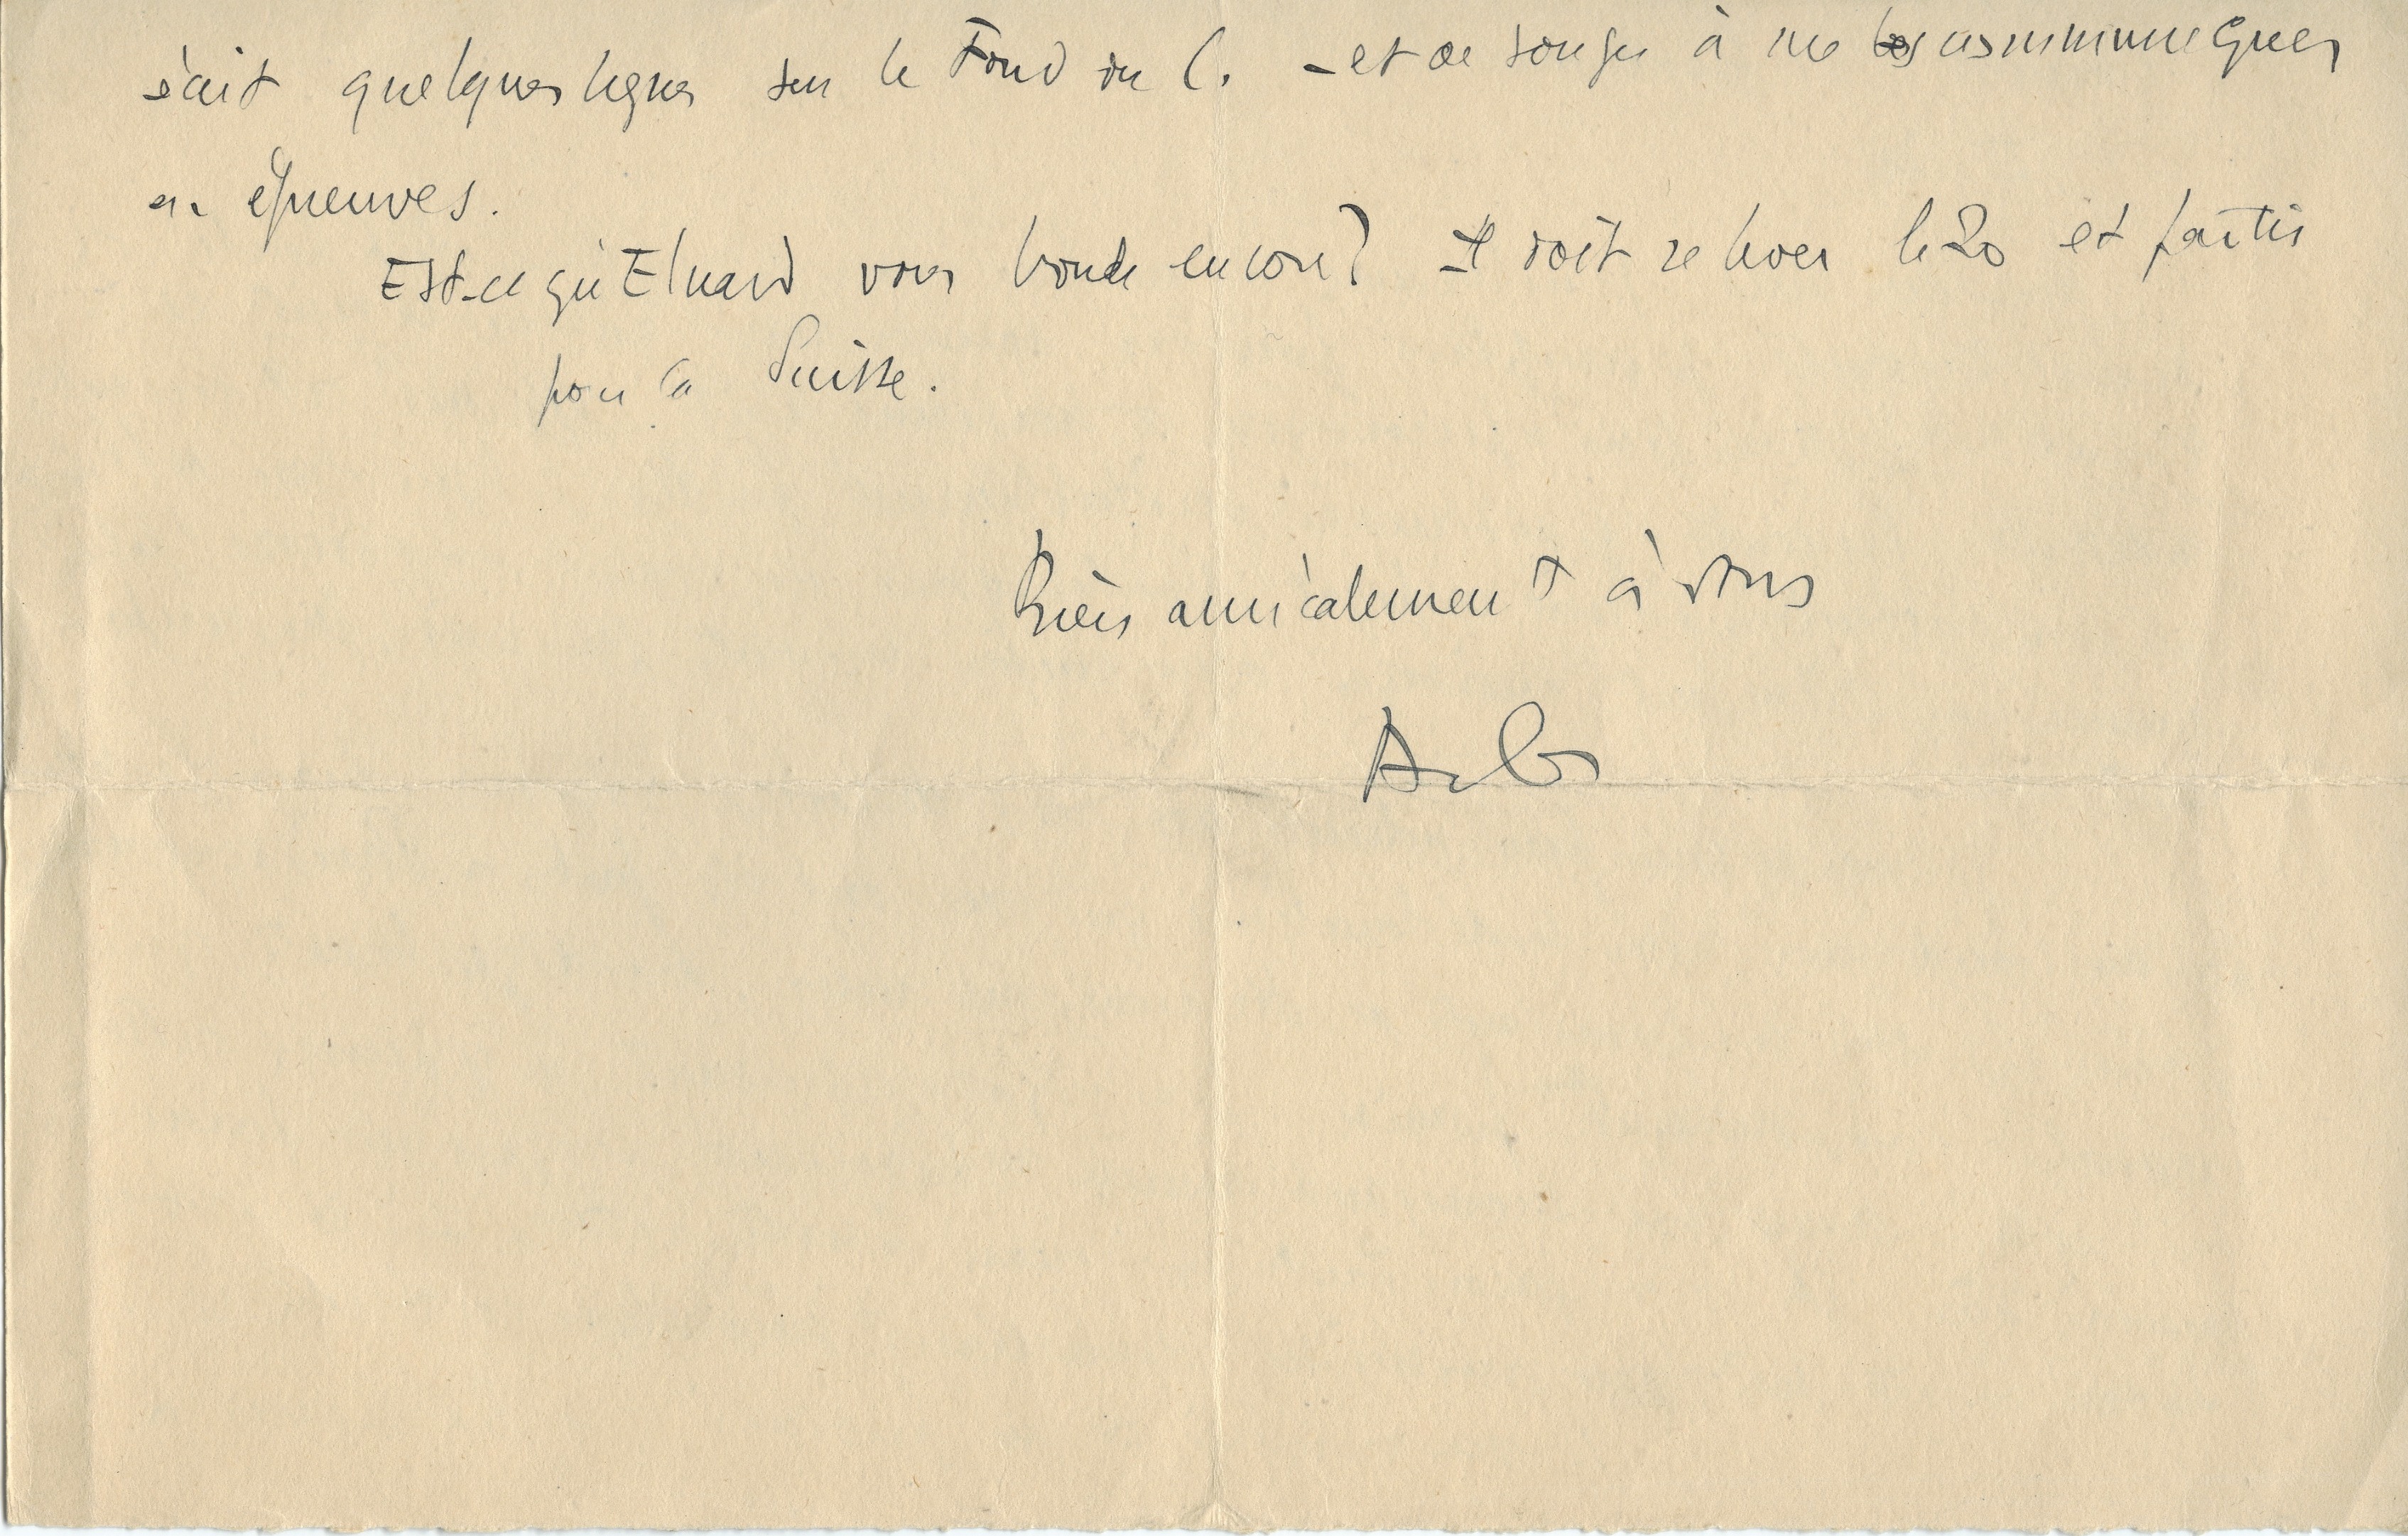 écrit quelques lignes sur le Fond du C. - et de songer à me les communiquer
en épreuves.
Est-ce qu'Eluard vous boude encore? Il doit se lever le 20 et partir
pour la Suisse.
Bien amicalement à vous